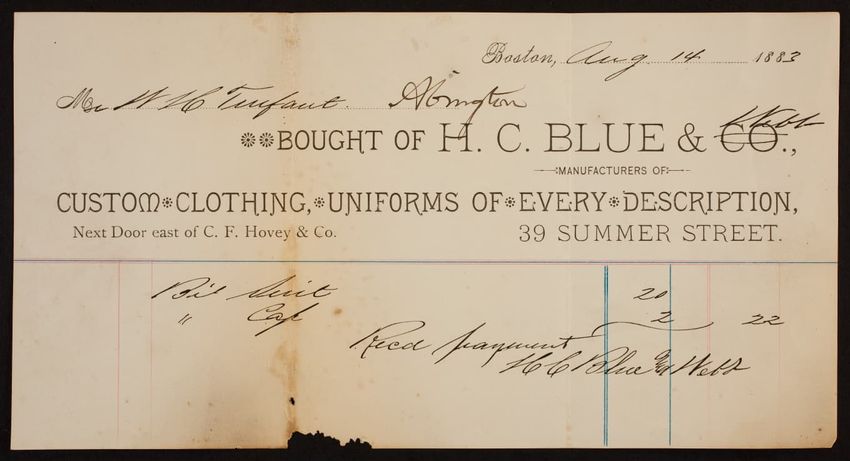 Boston, Aug 14 1883
Mr W H Turfaut. Abington
BOUGHT OF H. C. BLUE & CO., Webb
MANUFACTURERS OF
CUSTOM CLOTHING, UNIFORMS OF EVERY DESCRIPTION,
Next Door east of C. F. Hovey & Co. 39 SUMMER STREET.
Bil Suit 20
" Cap 2 22
Recd payment
H C Blue & Webb